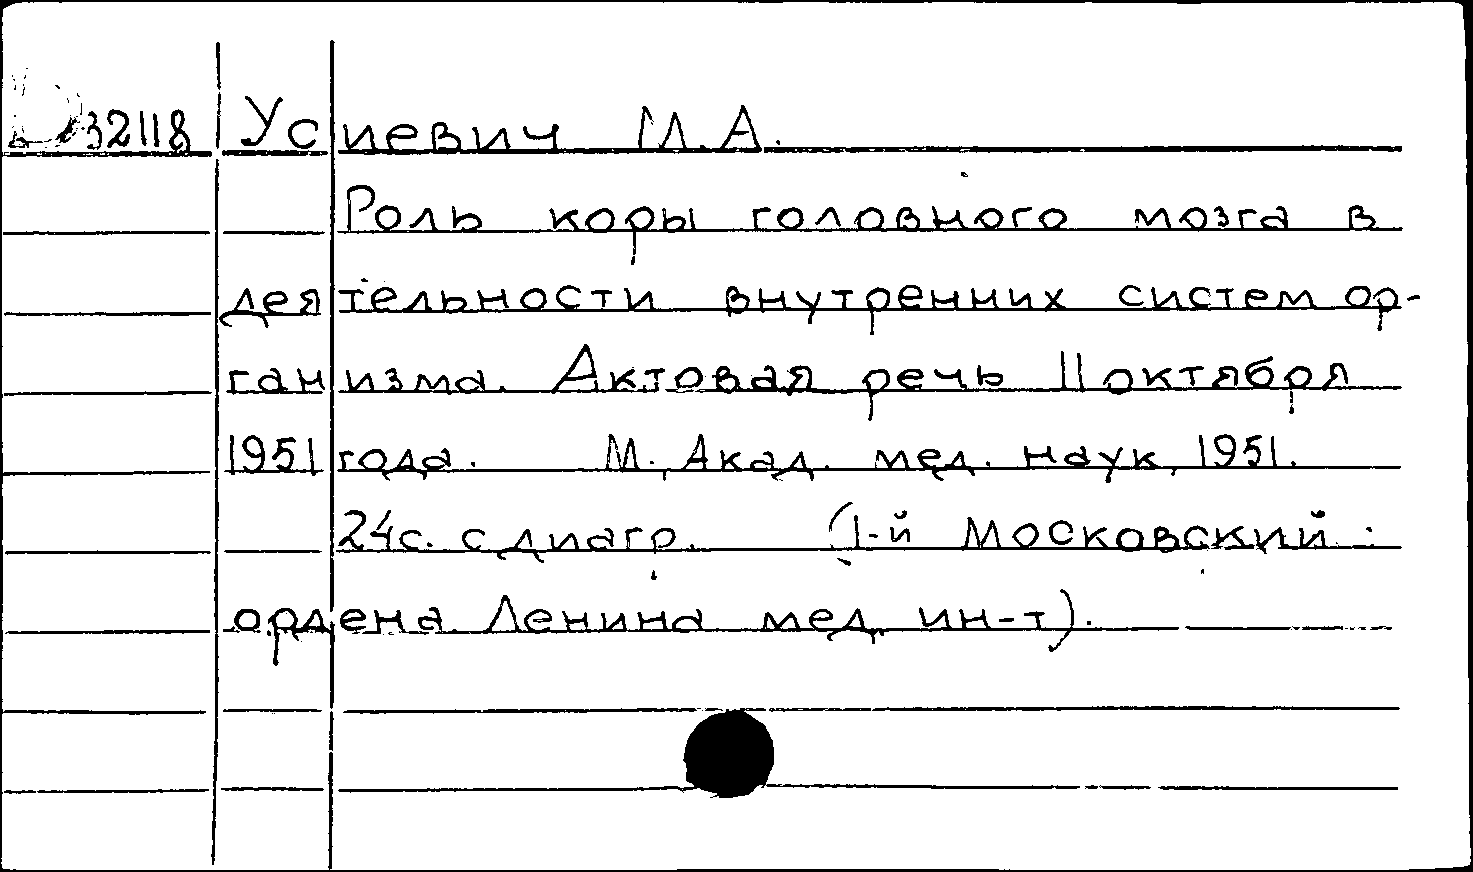 D 32118 Усиевич М.А.
Роль коры головного мозга в
деятельности внутренних систем ор-
ганизма. Актовая речь 11 октября
1951 года. М., Акад. мед. наук, 1951.
24с. с диагр. (1-й Московский
ордена Ленина мед. ин-т).